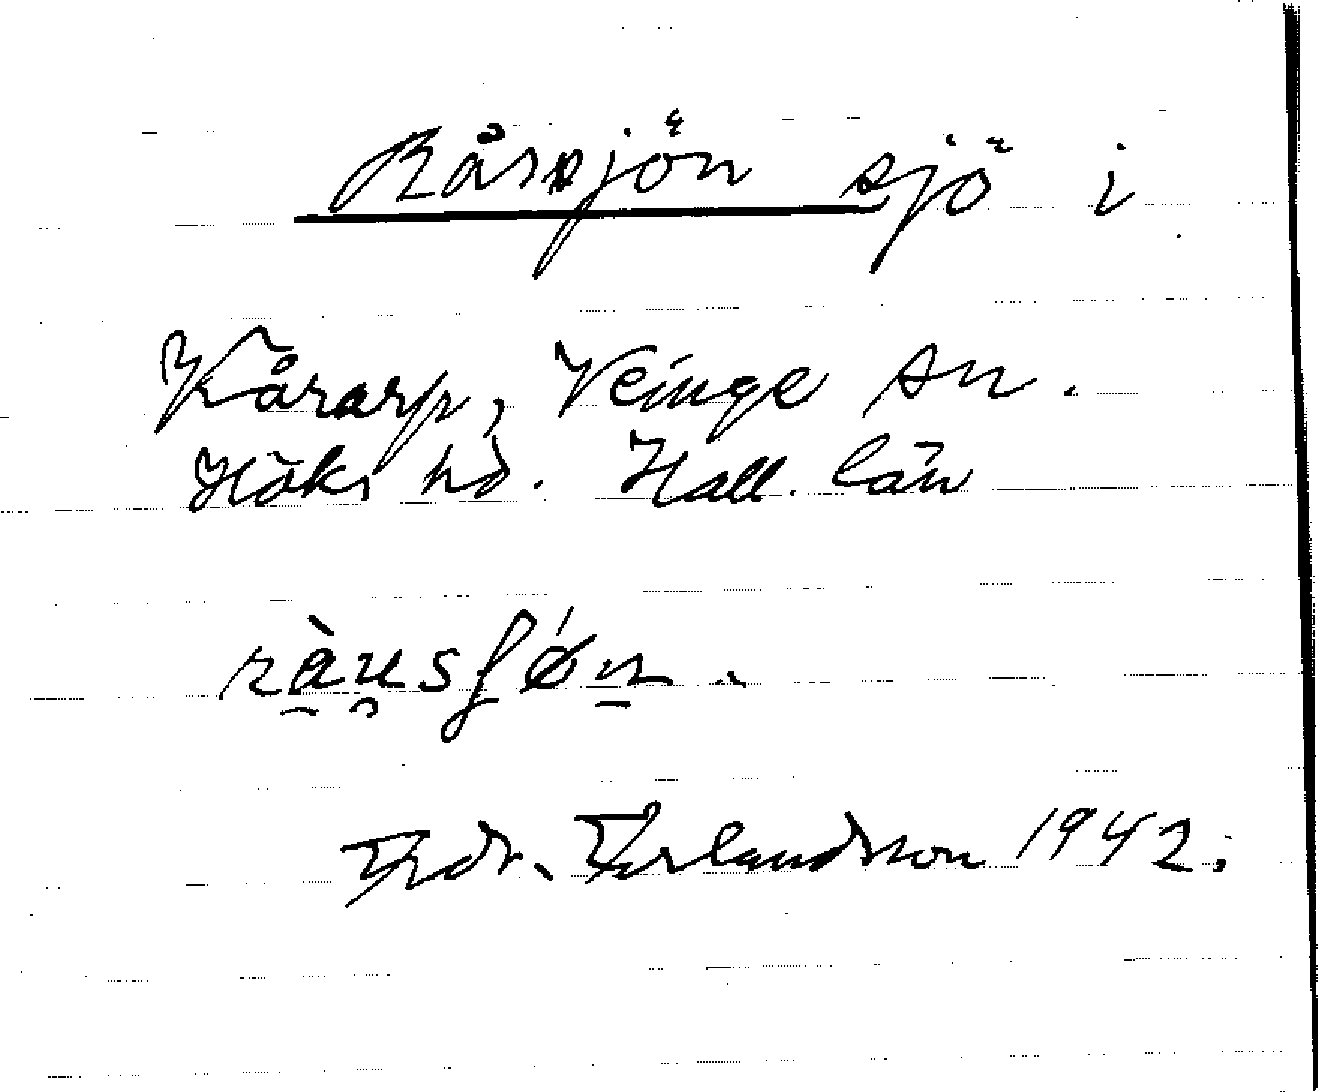 Råssjön sjö i
Kårarp, Veinge sn.
Höks hd. Hall. län
ràu̯sʃǿn.
Fredr. Ferlandsson 1942.